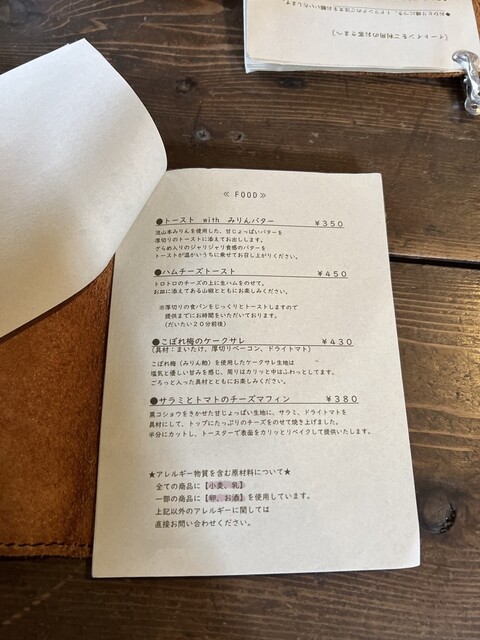 (イートインをご利用のお客さまへ)
≪ FOOD ≫
●トースト with みりんバター ￥350
流山本みりんを使用した、甘じょっぱいバターを
厚切りのトーストに添えてお出しします。
ざらめ入りのジャリジャリ食感のバターを
トーストが温かいうちに乗せてお召し上がりください。
●ハムチーズトースト ￥450
トロトロのチーズの上に生ハムをのせて。
お皿に添えてある山椒とともにお楽しみください。
※厚切りの食パンをじっくりとトーストしますので
提供までにお時間をいただいております。
(だいたい20分前後)
●こぼれ梅のケークサレ ￥430
(具材：まいたけ、厚切りベーコン、ドライトマト)
こぼれ梅（みりん粕）を使用したケークサレ生地は
塩気と優しい甘みを感じ、周りはカリッと中はふわっとしてます。
ごろっと入った具材とともにお楽しみください。
●サラミとトマトのチーズマフィン ￥380
黒コショウをきかせた甘じょっぱい生地に、サラミ、ドライトマトを
具材にして、トップにたっぷりのチーズをのせて焼き上げました。
半分にカットし、トースターで表面をカリッとリベイクして提供いたします。
★アレルギー物質を含む原材料について★
全ての商品に【小麦、乳】
一部の商品に【卵、お酒】を使用しています。
上記以外のアレルギーに関しては
直接お問い合わせください。